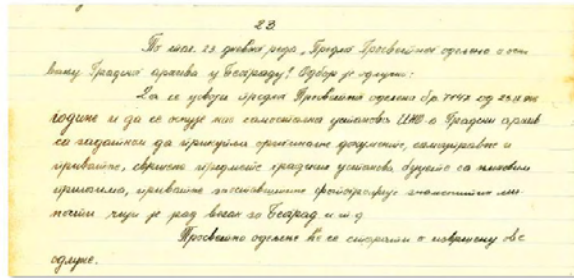 23.
По тач. 23. дневног реда „Предлог Просветног одељења о осни
вању Градског архива у Београду“ Одбор је одлучио:
Да се усвоји предлог Просветног одељења бр. 7147 од
године и да се оснује као самостална установа ИНО-а Градски архив
са задатком да прикупља оригинална документа, самоуправне и
приватне, свршене предмете градских установа буџете са њиховим
прилозима, приватне заоставштине фотографије знаменитих ли
чности чији је рад везан за Београд и т.д.
Просветно одељење ће се старати о извршењу ове
одлуке.